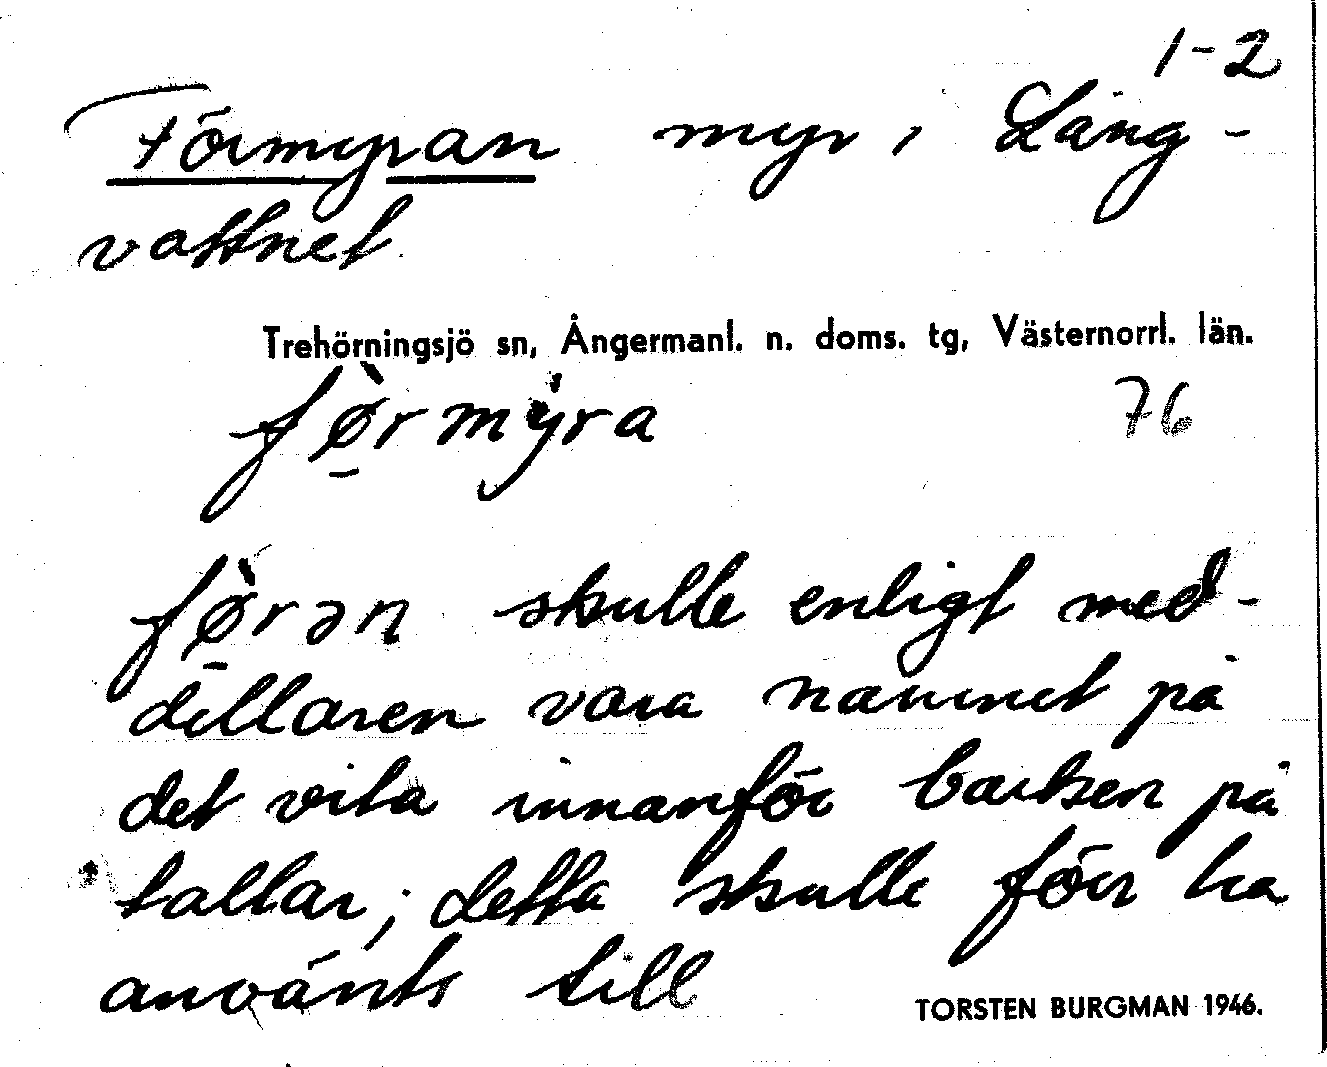 1-2
Förmyran myr, Lång-
vattnet
Trehörningsjö sn, Ångermanl. n. doms. tg, Västernorrl. län.
fø̀rmyra 76
fø̀rən skulle enligt med-
dellaren vara namnet på
det vita innanför barken på
tallar; detta skulle förr ha
använts till
TORSTEN BURGMAN 1946.